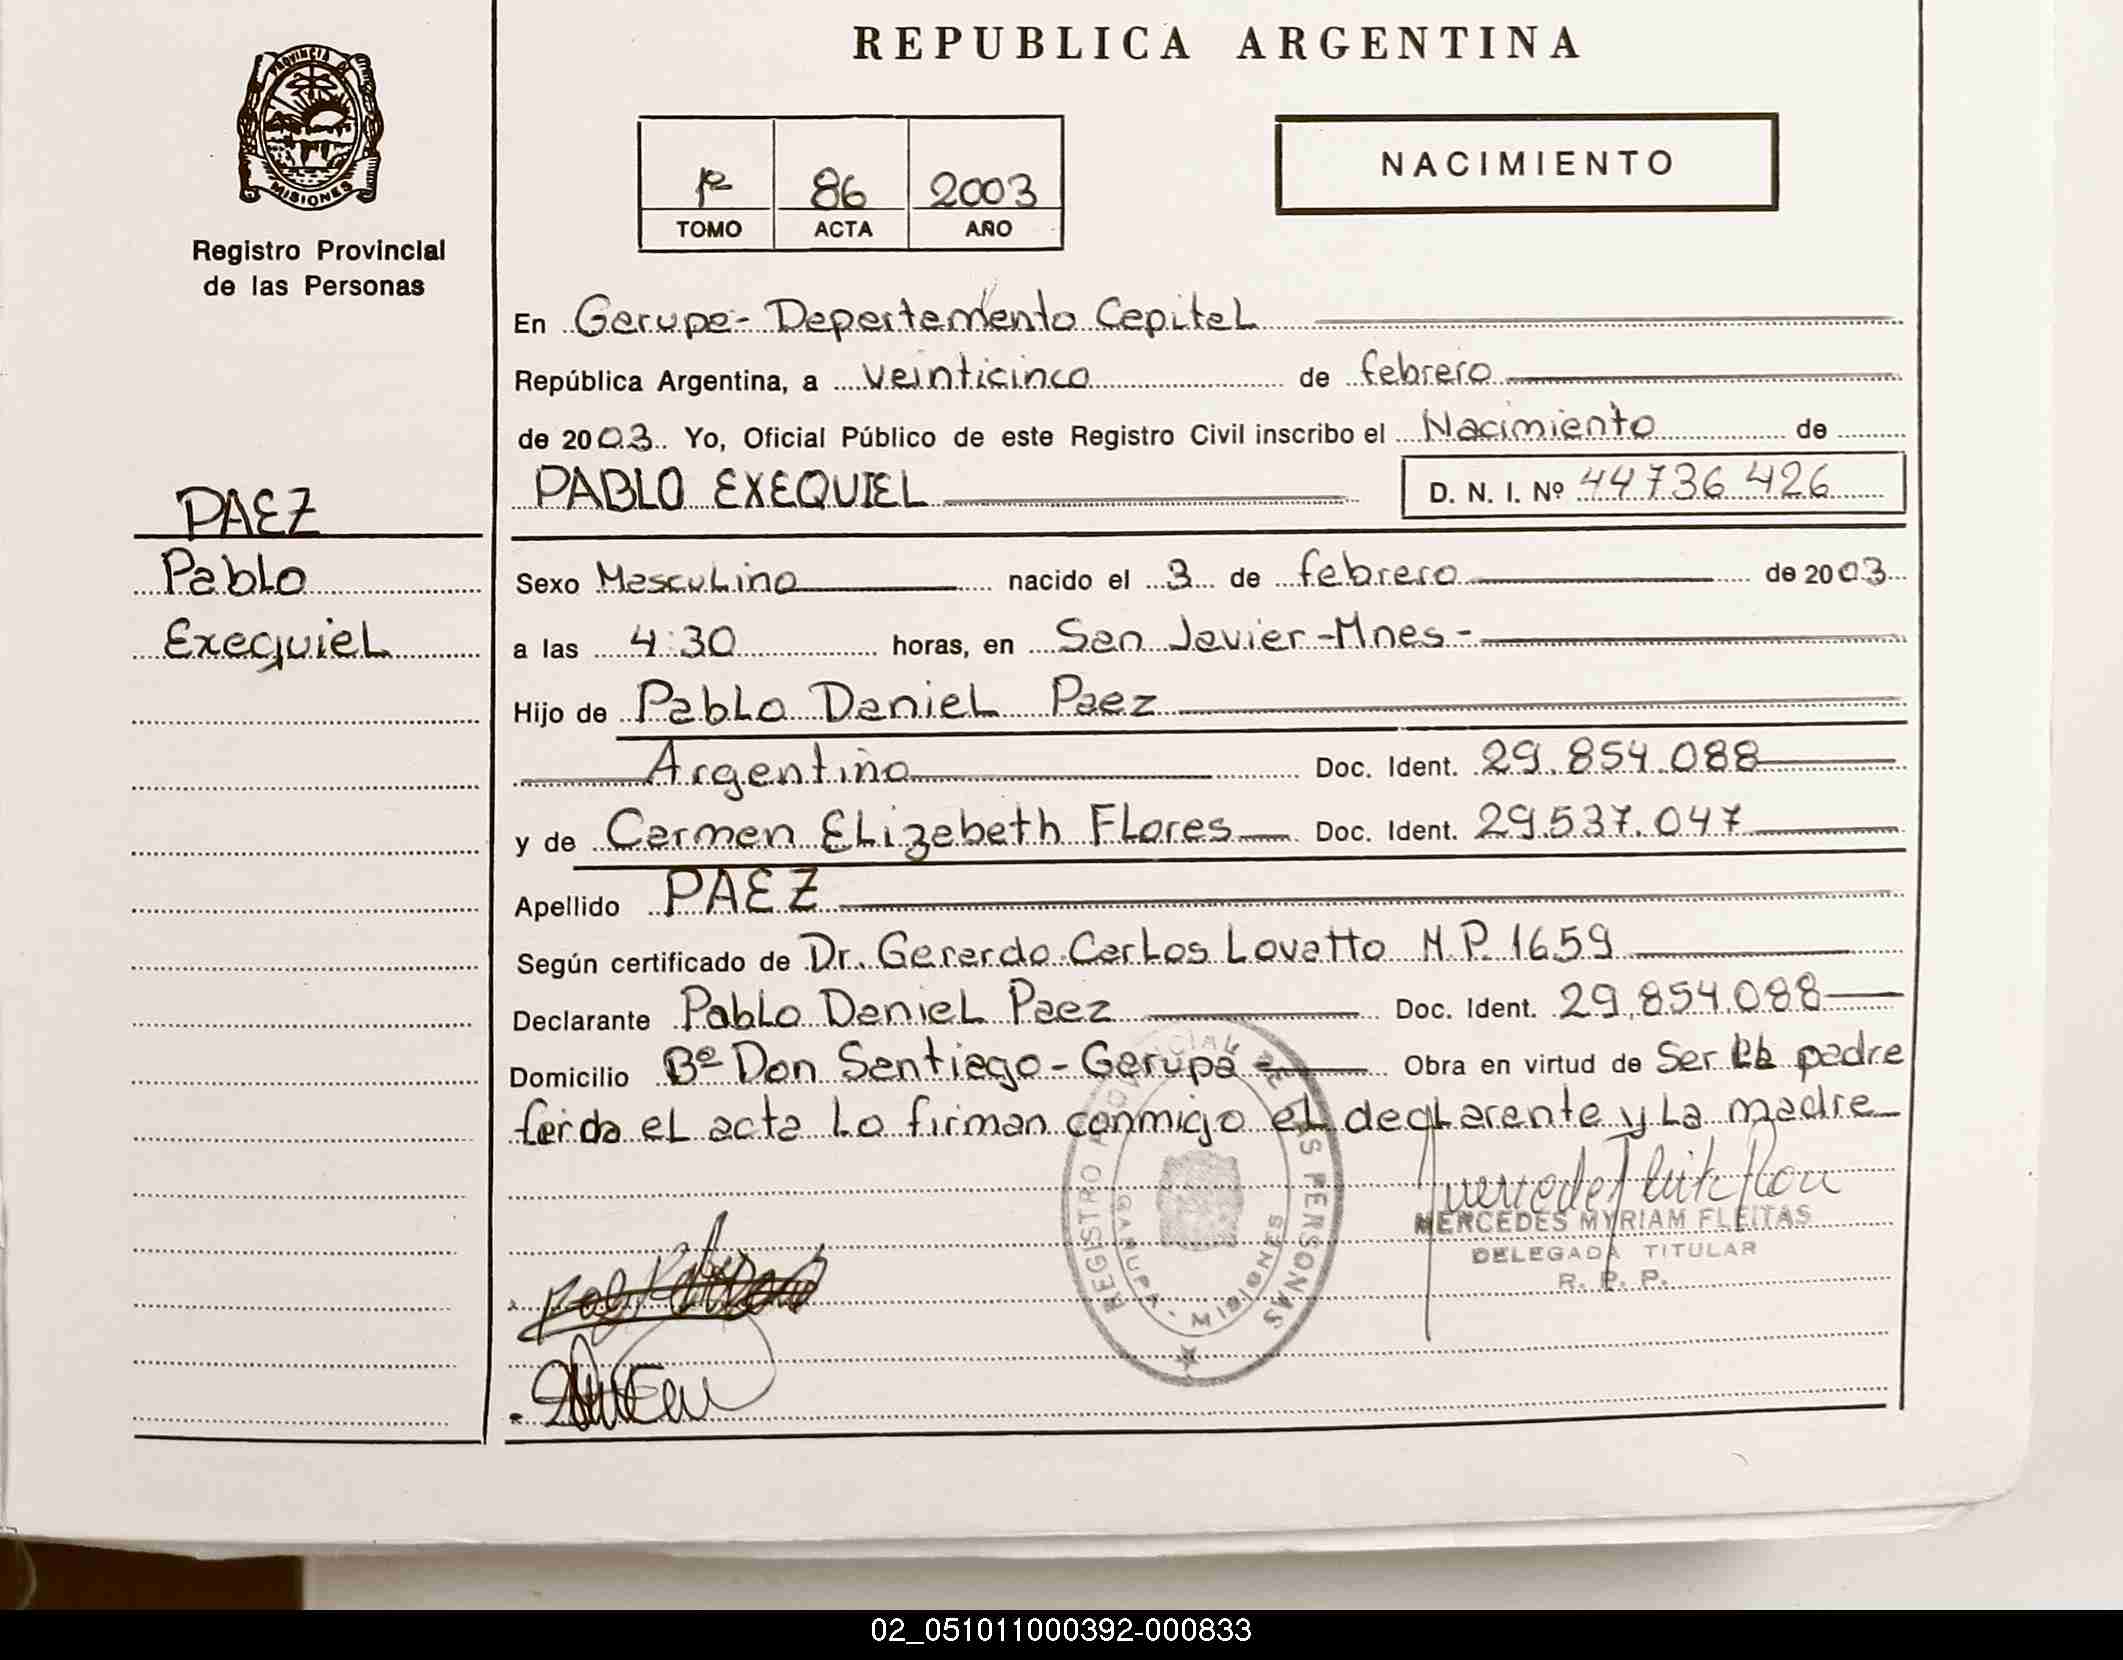 REPUBLICA ARGENTINA
PROVINCIA DE MISIONES
Registro Provincial
de las Personas
1º 86 2003
TOMO ACTA AÑO
NACIMIENTO
En Garupa - Departamento Capital
República Argentina, a veinticinco de febrero
de 2003. Yo, Oficial Público de este Registro Civil inscribo el Nacimiento de
PABLO EXEQUIEL D. N. I. Nº 44736426
PAEZ
Pablo
Exequiel
Sexo Masculino nacido el 3 de febrero de 2003
a las 4:30 horas, en San Javier - Mnes -
Hijo de Pablo Daniel Paez
Argentino Doc. Ident. 29.854.088
y de Carmen Elizabeth Flores Doc. Ident. 29.537.047
Apellido PAEZ
Según certificado de Dr. Gerardo Carlos Lovatto M.P. 1659
Declarante Pablo Daniel Paez Doc. Ident. 29.854.088
Domicilio Bº Don Santiago - Garupa - Obra en virtud de Ser el padre
leida el acta lo firman conmigo el declarante y la madre
REGISTRO PROVINCIAL DE LAS PERSONAS
GARUPA - MISIONES
MERCEDES MYRIAM FLEITAS
DELEGADA TITULAR
R. P. P.
02_051011000392-000833